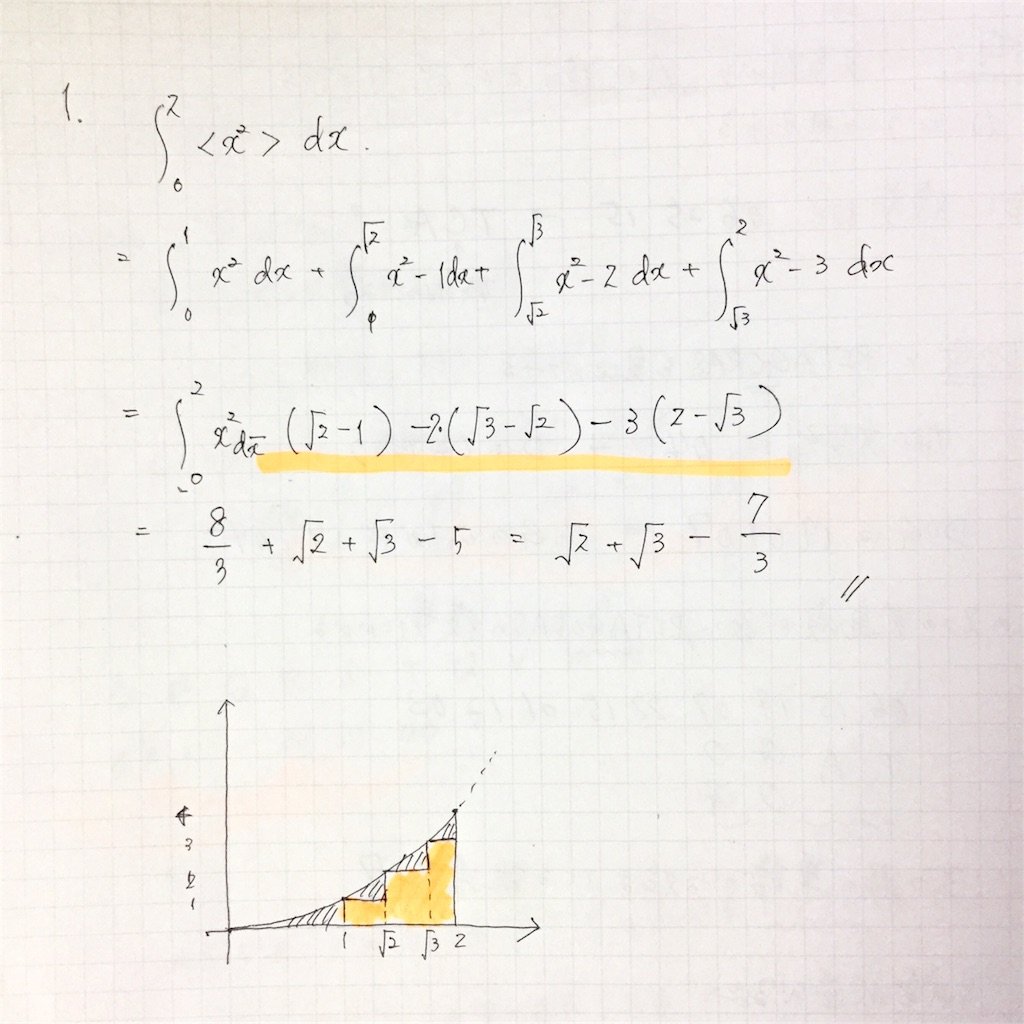 1.
∫₀² <x²> dx.
= ∫₀¹ x² dx + ∫₁^√2 x² - 1 dx + ∫_√2^√3 x² - 2 dx + ∫_√3² x² - 3 dx
= ∫₀² x² dx - (√2 - 1) - 2·(√3 - √2) - 3(2 - √3)
= 8/3 + √2 + √3 - 5 = √2 + √3 - 7/3 //
4
3
2
1
1 √2 √3 2